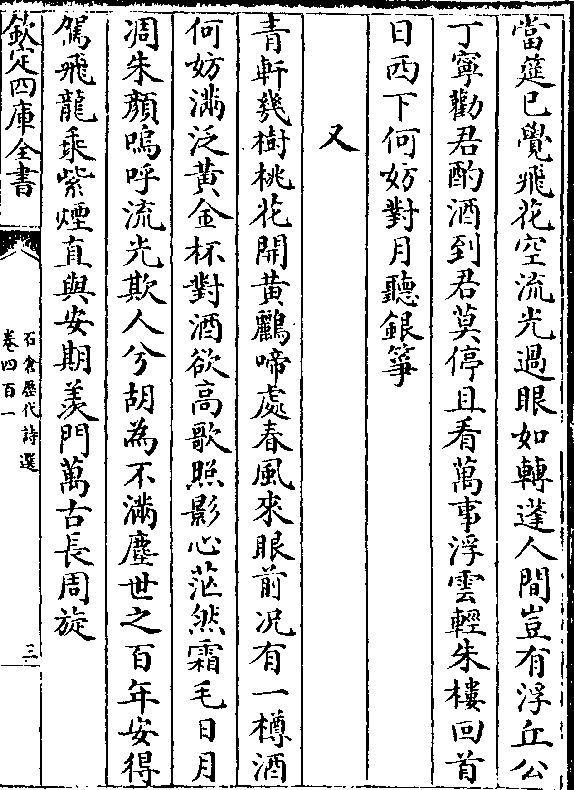 當筵已覺飛花空流光過眼如轉蓬人間豈有浮丘公
丁寧勸君酌酒到君莫停且看萬事浮雲輕朱樓回首
日西下何妨對月聽銀箏
又
青軒幾樹桃花開黃鸝啼處春風來眼前況有一樽酒
何妨滿泛黃金杯對酒欲高歌照影心茫然霜毛日月
凋朱顏嗚呼流光欺人兮胡為不滿塵世之百年安得
駕飛龍乘紫煙直與安期羨門萬古長周旋
欽定四庫全書
石倉歷代詩選
卷四百一
三